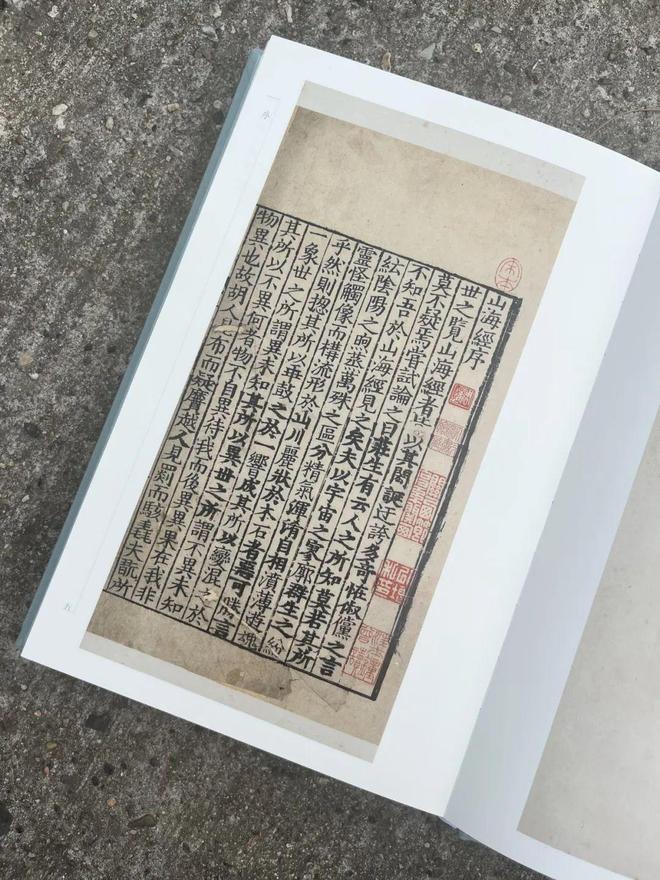 山海經序
世之覽山海經者皆以其閎誕迂誇多奇怪俶儻之言
莫不疑焉嘗試論之曰莊生有云人之所知莫若其所
不知吾於山海經見之矣夫以宇宙之寥廓群生之紛
紜陰陽之煦蒸萬殊之區分精氣渾淆自相濆薄遊魂
靈怪觸像而構流形於山川麗狀於木石者惡可勝言
乎然則摠其所以乖鼓之於一響成其所以變混之於
一象世之所謂異未知其所以異世之所謂不異未知
其所以不異何者物不自異待我而後異異果在我非
物異也故胡人見布而疑黂越人見罽而駭毳夫翫所
宋本
序
五